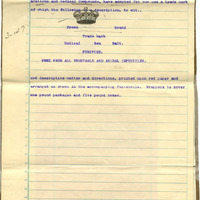 and Medical Compound, have adopted for our use a trade mark
of which the following is a description, to wit:.
Crown Brand
Trade Mark
Medical Sea Salt.
PURIFIED.
FREE FROM ALL VEGETABLE AND ANIMAL IMPURITIES.
and descriptive matter and directions, printed upon red paper and
arranged as shown in the accompanying facsimile. Wrappers to cover
one pound packages and five pound boxes.